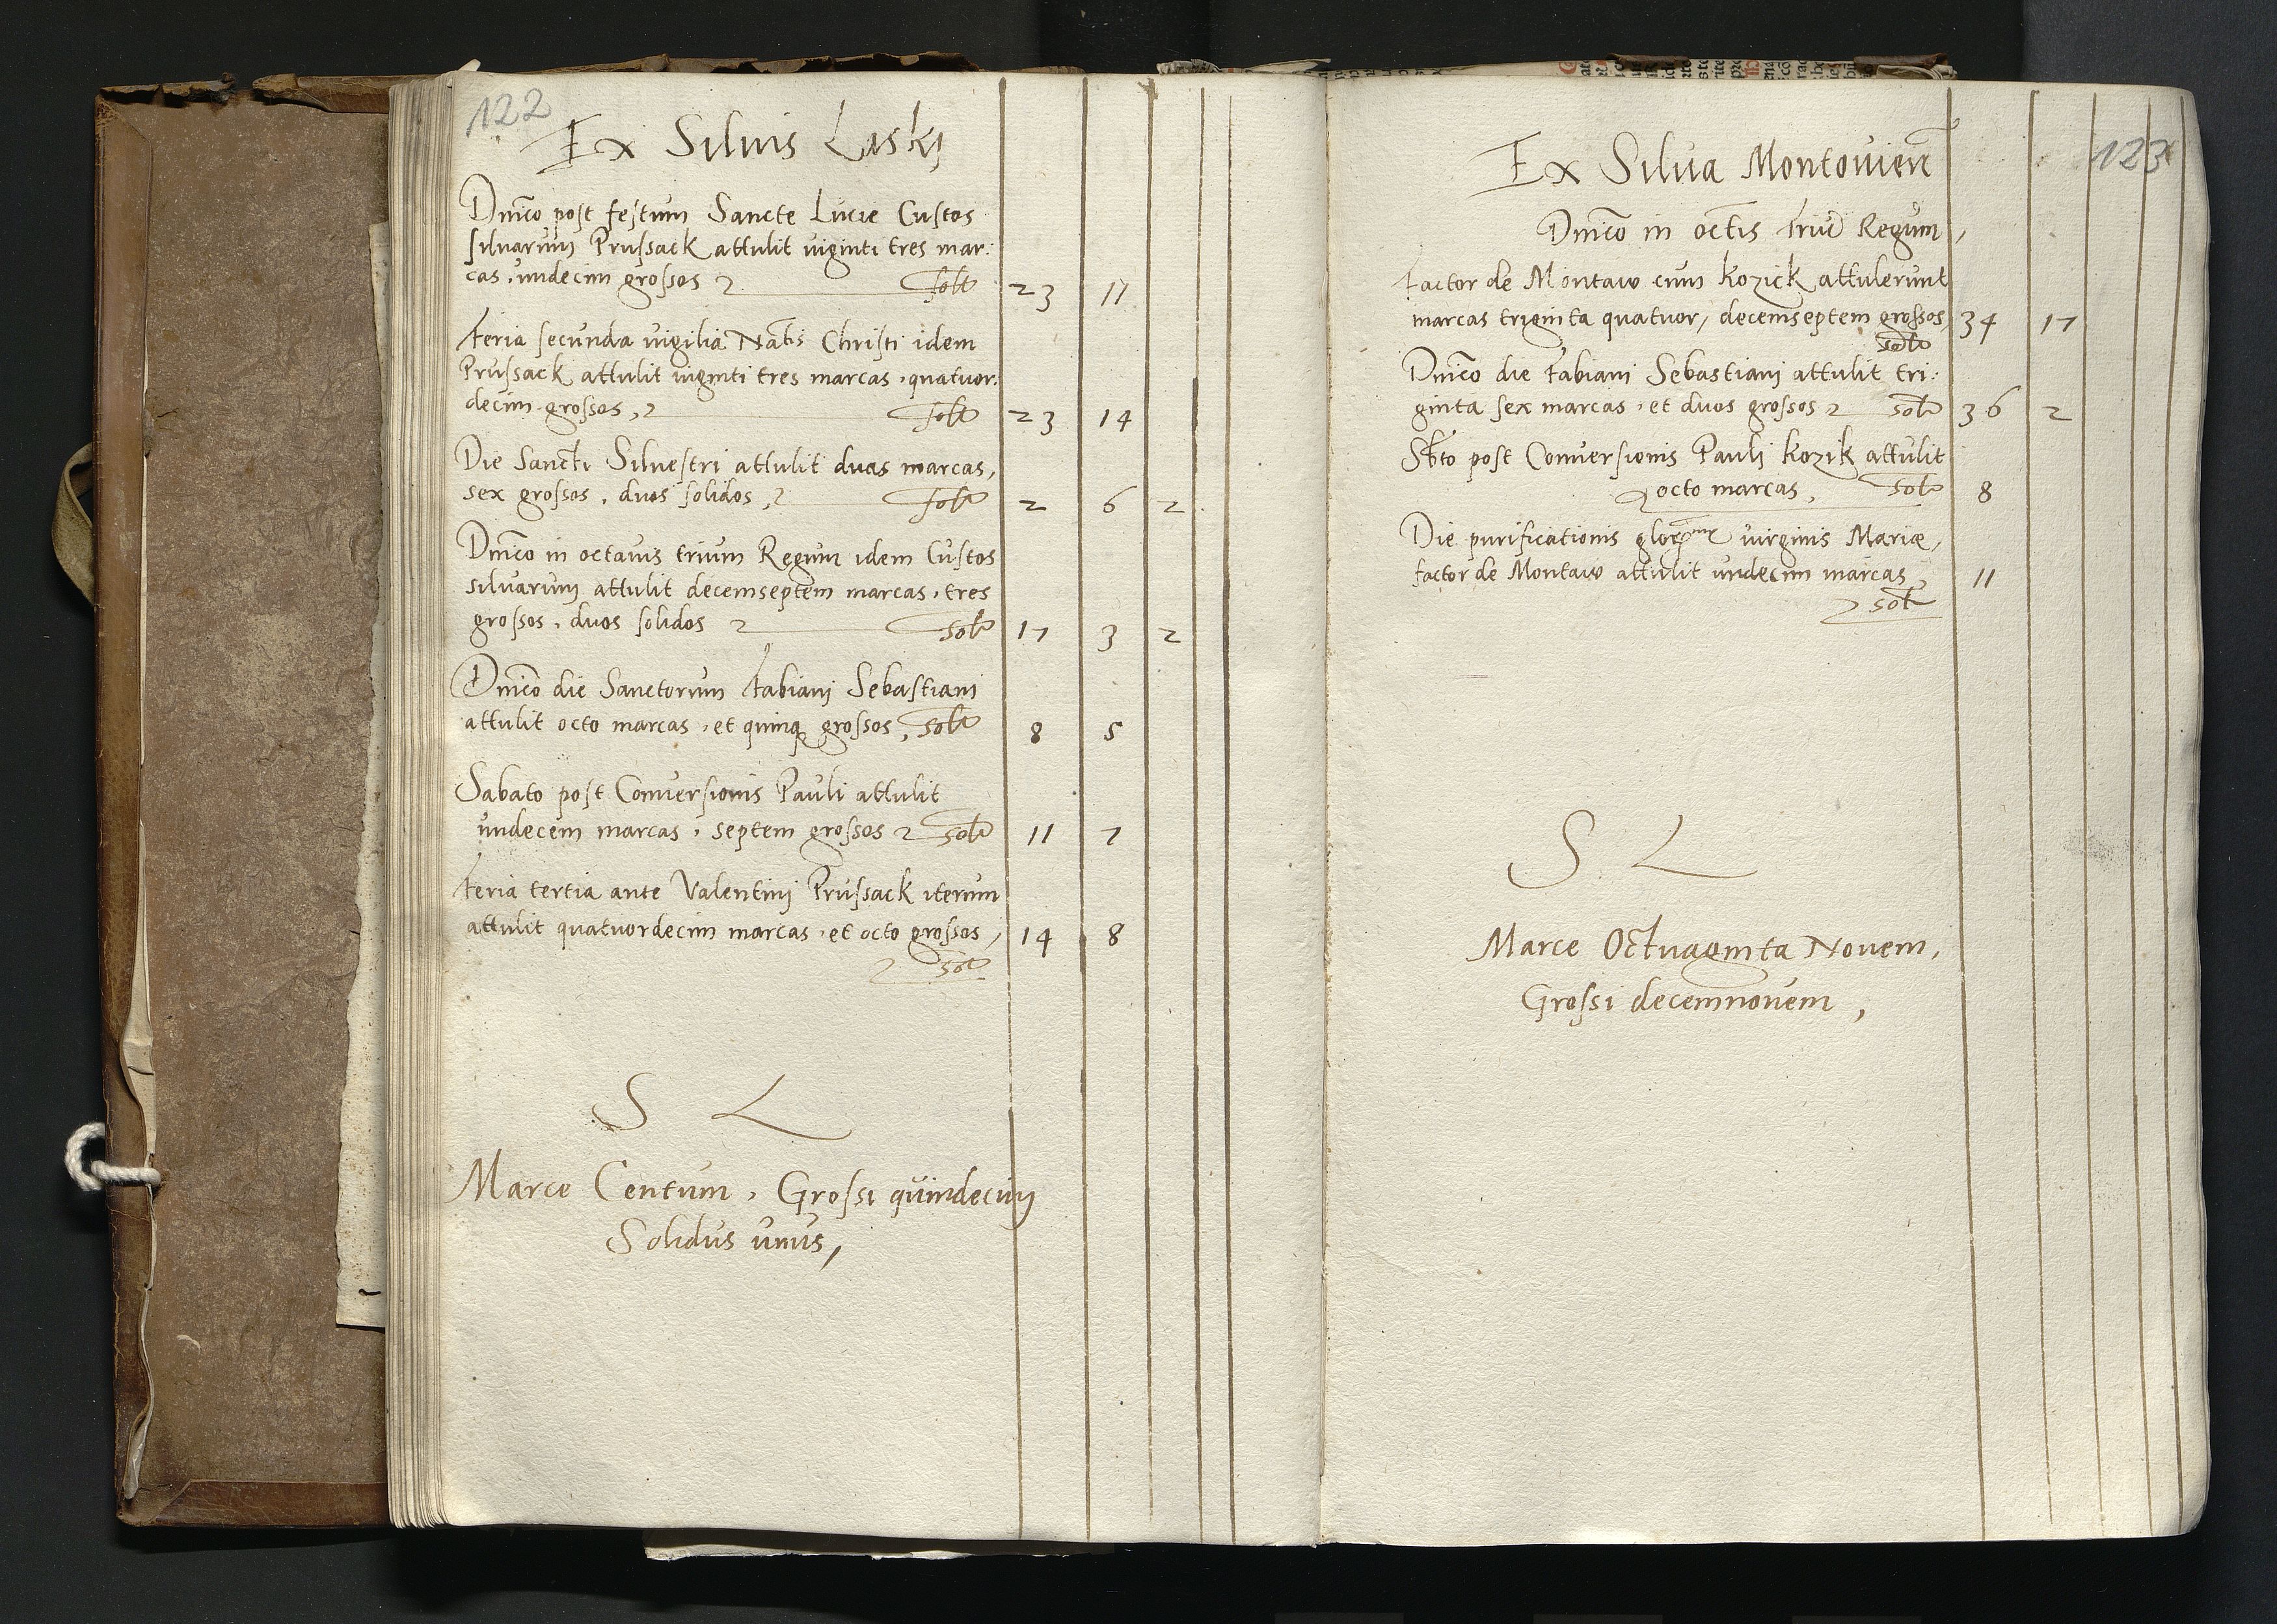 122
Ex Siluis Laskj
Dnico post festum Sancte Lucie Custos
siluarum Prussack attulit uiginti tres mar:
cas, undecim grossos solt 23 11
Feria secunda uigilia Natis Christi idem
Prussack attulit uiginti tres marcas, quatuor:
decim grossos, solt 23 14
Die Sancti Siluestri attulit duas marcas,
sex grossos, duos solidos, solt 2 6 2
Dnico in octauis trium Regum idem Custos
siluarum attulit decemseptem marcas, tres
grossos, duos solidos solt 17 3 2
Dnico die Sanctorum Fabianj Sebastianj
attulit octo marcas, et quinq grossos, solt 8 5
Sabato post Conuersionis Pauli attulit
undecem marcas, septem grossos solt 11 7
Feria tertia ante Valentinj Prussack iterum
attulit quatuordecim marcas, et octo grossos, 14 8
solt
S L
Marce Centum, Grossi quindecim
Solidus unus,
123
Ex Silua Montouien
Dnico in octis Triu Regum,
Factor de Montaw cum Kozick attulerunt
marcas triginta quatuor, decemseptem grossos, 34 17
solt
Dnico die Fabianj Sebastianj attulit tri:
ginta sex marcas, et duos grossos solt 36 2
Sbto post Conuersionis Paulj Kozik attulit
octo marcas, solt 8
Die purificationis uirginis Mariæ,
factor de Montaw attulit undecim marcas, 11
solt
S L
Marce Octuaginta Nouem,
Grossi decemnouem,